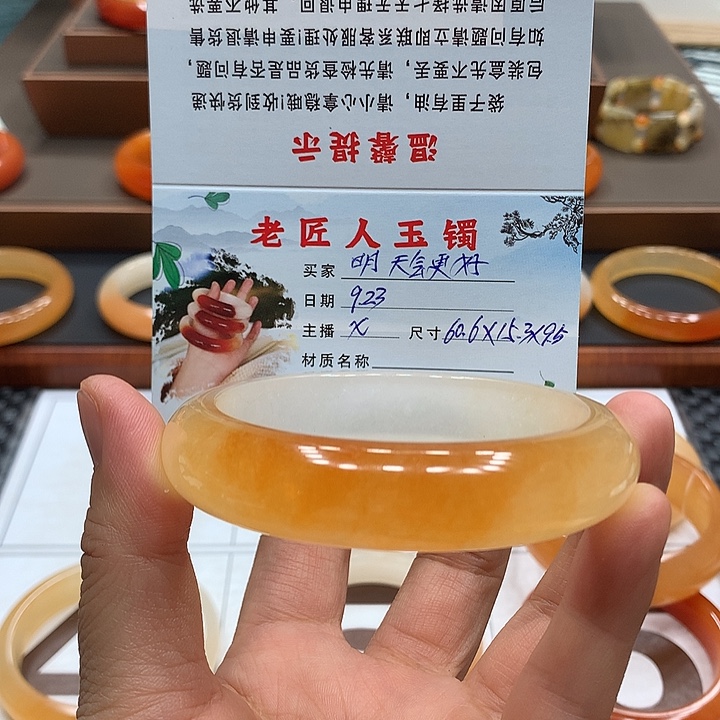 老匠人玉镯
买家 明天会更好
日期 923
主播 X 尺寸 60.6X15.3X9.5
材质名称
温馨提示
袋子里有油，请小心拿稳哦!收到货快递
包装盒先不要丢，请先检查货品是否有问题，
如有问题请立即联系客服处理!要申请退货售
后原因请选择七天无理由退回，其他不要选